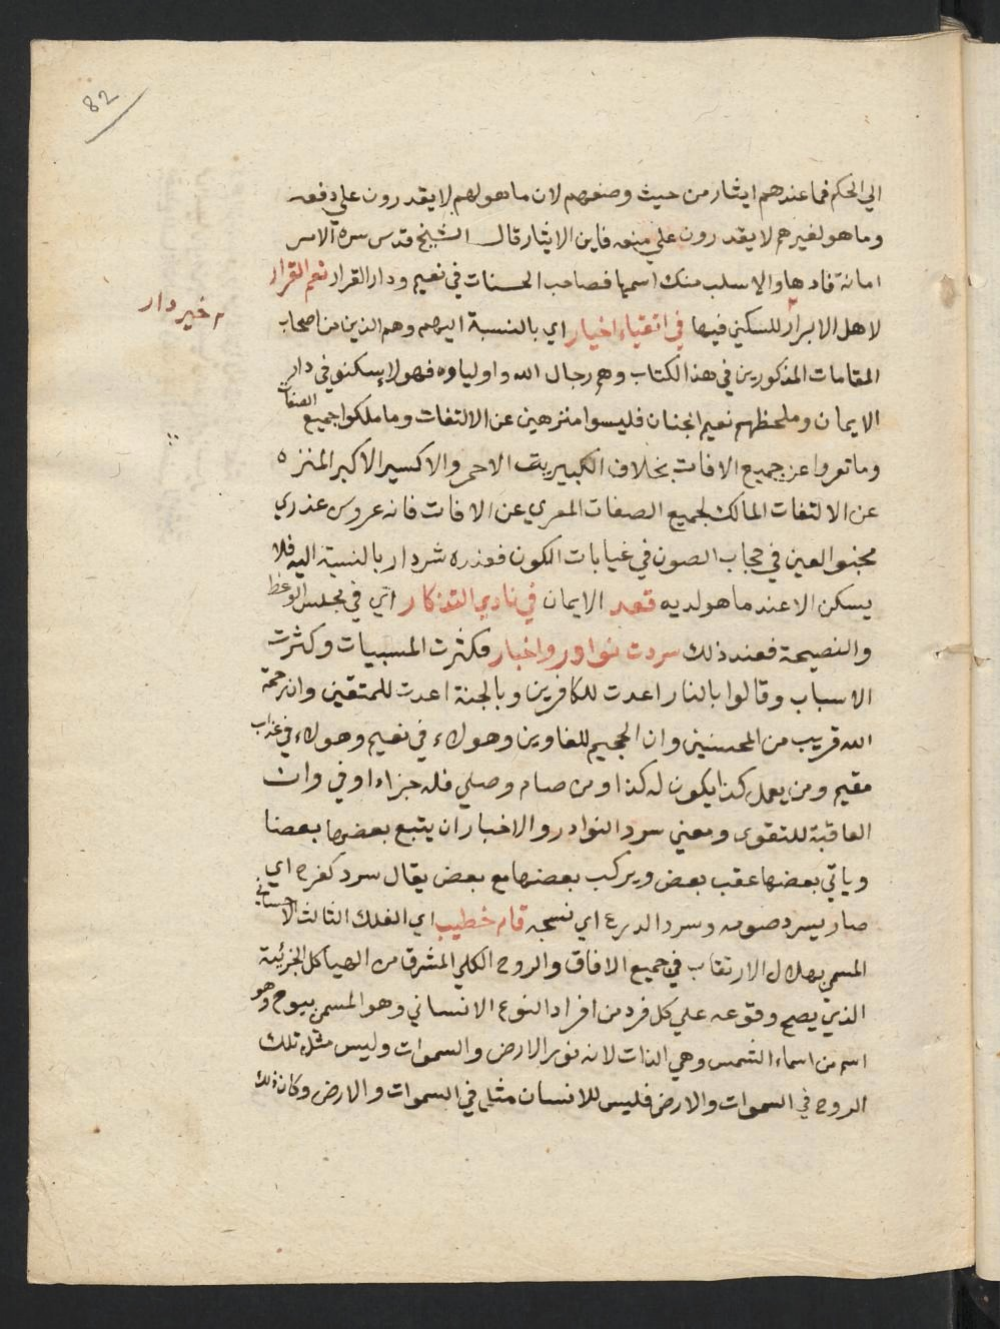 82
الي الحكم فما عندهم ايثار من حيث وصفهم لان ما هو لهم لا يقدرون علي دفعه
وما هو لغيرهم لا يقدرون علي منعه فاين الايثار قال الشيخ قدس سره الامر
امانة فادها والا سلب منك اسمها فصاحب الحسنات في نعيم ودار القرار نعم القرار
خير دار
لاهل الابرار للسكني فيها في اتقياء اخيار اي بالنسبة اليهم وهم الذين من اصحاب
المقامات المذكورين في هذا الكتاب وهم رجال الله واولياوه فهولا يسكنو في دار
الايمان وملحظهم نعيم الجنان فليسوا منزهين عن الالتفات وما ملكوا جميع الصفات
وما تعروا عن جميع الافات بخلاف الكبريت الاحمر والاكسير الاكبر المنزه
عن الالتفات المالك لجميع الصفات المعري عن الافات فانه عروس عذري
مجنو العين في حجاب الصون في غيابات الكون فعنده شر دار بالنسبة اليه فلا
يسكن الا عند ما هو لديه قعد الايمان في نادي التذكار اي في مجلس الوعظ
والنصيحة فعند ذلك سردت نوادر واخبار فكثرت المسببات وكثرت
الاسباب وقالوا بالنار اعدت للكافرين وبالجنة اعدت للمتقين وان رحمة
الله قريب من المحسنين وان الجحيم للغاوين وهولاء في نعيم وهولاء في عذاب
مقيم ومن يعمل كذا يكون له كذا ومن صام وصلي فله جزاء اوفي وان
العاقبة للتقوي ومعني سرد النوادر والاخبار ان يتبع بعضها بعضا
وياتي بعضها عقب بعض ويركب بعضها مع بعض يقال سرد كفرح اي
صار يسرد صومه وسرد الدرع اي نسجه قام خطيب اي الفلك الثالث الانساني
المسمي بهلال الارتقاب في جميع الافاق والروح الكلي المشرق من الهياكل الجزئية
الذي يصح وقوعه علي كل فرد من افراد النوع الانساني وهو المسمي بيوح وهو
اسم من اسماء الشمس وهي الذات لانه نور الارض والسموات وليس مثل تلك
الروح في السموات والارض فليس للانسان مثل في السموات والارض وكان ذلك